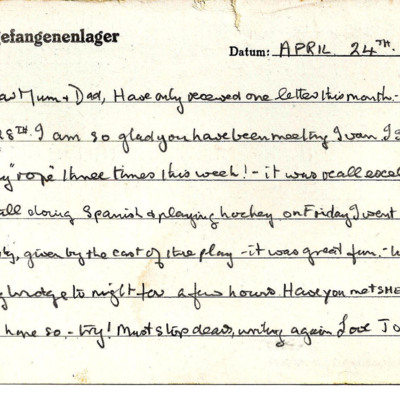 gefangenenlager
Datum: APRIL 24TH.
Mum & Dad, Have only received one letter this month-
28TH. I am so glad you have been meeting Ivan. I s
"rope" three times this week! - it was really excel
all doing Spanish & playing hockey. on Friday I went
given by the cast of the play - it was great fun. -
bridge to night for a few hours Have you met SHE
have so, - try! Must stop dears, writing again Love Jo